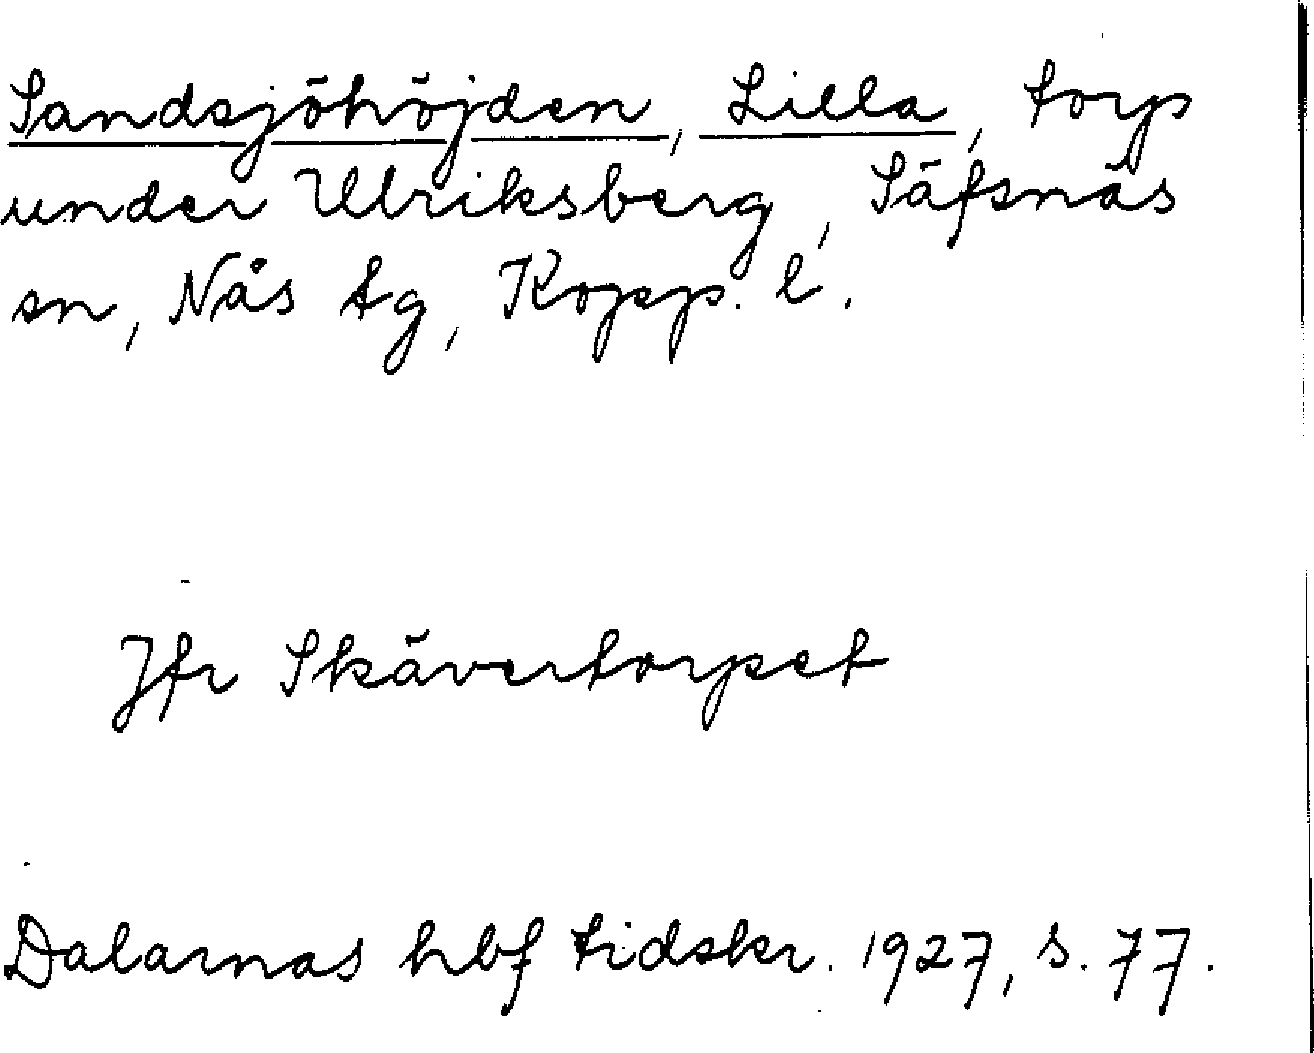 Sandsjöhöjden, Lilla, torp
under Ulriksberg, Säfsnäs
sn, Nås tg, Kopp. l.
Jfr Skävertorpet
Dalarnas hbf tidskr. 1927, s. 77.